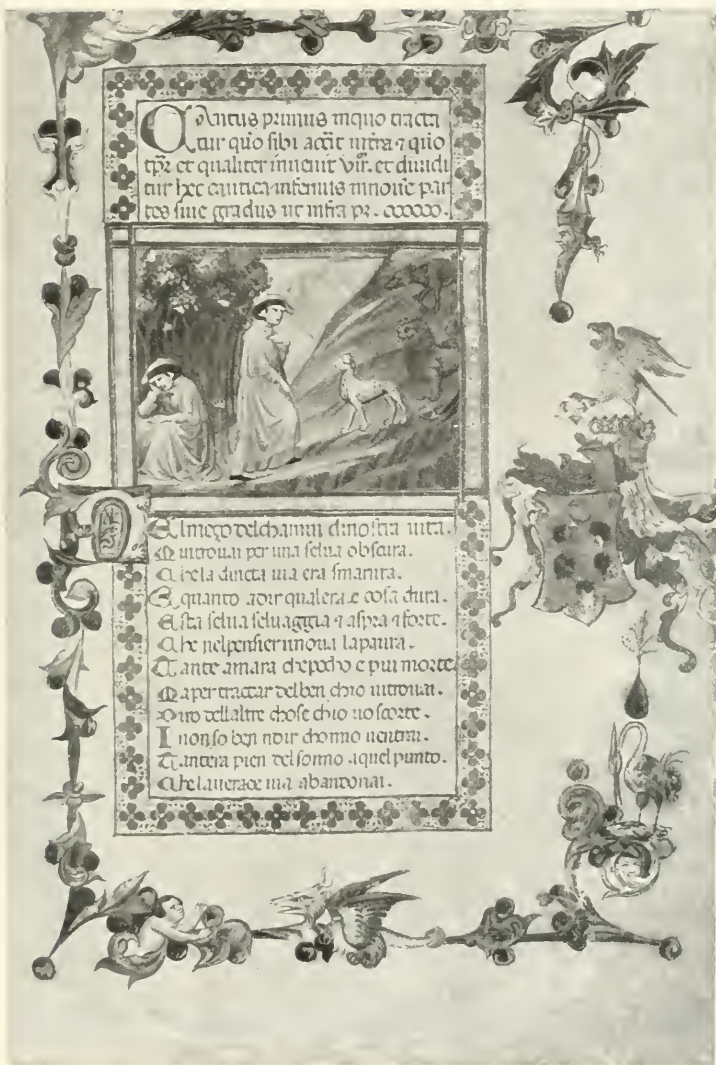 Cantus primus in quo tracta
tur quo sibi accit intra ⁊ quo
tpr̄ et qualiter inuenit vir̄. et diuidi
tur hec cantica infernus in noue par
tes siue gradus ut infra pr. cccccc.
D
El mezo del chamin di nostra uita.
Mi trouai per una selua obscura.
Che la diricta uia era smarrita.
E quanto adir qual era e cosa dura.
Esta selua seluaggia ⁊ aspra ⁊ forte.
Che nel pensier rinoua la paura.
Tante amara che pocho e piu morte
Ma per tractar del ben chio ui trouai.
Diro dell altre chose chio uo scorte.
I non so ben ridir chomo uentrai.
Tantera pien del sonno aquel punto.
Che la uerace uia abandonai.